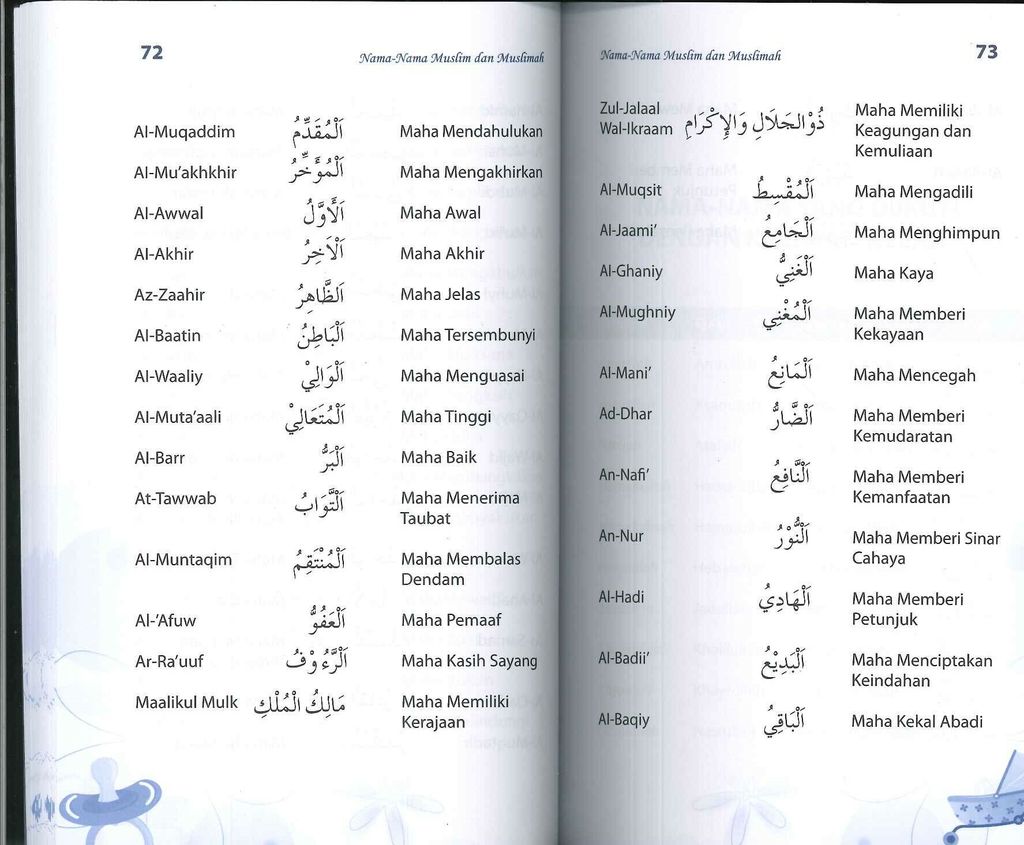 72
Nama-Nama Muslim dan Muslimah
Al-Muqaddim اَلْمُقَدِّمُ Maha Mendahulukan
Al-Mu'akhkhir اَلْمُؤَخِّرُ Maha Mengakhirkan
Al-Awwal اَلْاَوَّلُ Maha Awal
Al-Akhir اَلْآخِرُ Maha Akhir
Az-Zaahir اَلظَّاهِرُ Maha Jelas
Al-Baatin اَلْبَاطِنُ Maha Tersembunyi
Al-Waaliy اَلْوَالِيْ Maha Menguasai
Al-Muta'aali اَلْمُتَعَالِيْ Maha Tinggi
Al-Barr اَلْبَرُّ Maha Baik
At-Tawwab اَلتَّوَابُ Maha Menerima
Taubat
Al-Muntaqim اَلْمُنْتَقِمُ Maha Membalas
Dendam
Al-'Afuw اَلْعَفُوُّ Maha Pemaaf
Ar-Ra'uuf اَلرَّءُوْفُ Maha Kasih Sayang
Maalikul Mulk مَالِكُ الْمُلْكِ Maha Memiliki
Kerajaan
Nama-Nama Muslim dan Muslimah
73
Zul-Jalaal
Wal-Ikraam ذُوْالْجَلَالِ وَالْإِكْرَامِ Maha Memiliki
Keagungan dan
Kemuliaan
Al-Muqsit اَلْمُقْسِطُ Maha Mengadili
Al-Jaami' اَلْجَامِعُ Maha Menghimpun
Al-Ghaniy اَلْغَنِيُّ Maha Kaya
Al-Mughniy اَلْمُغْنِي Maha Memberi
Kekayaan
Al-Mani' اَلْمَانِعُ Maha Mencegah
Ad-Dhar اَلْضَّارُّ Maha Memberi
Kemudaratan
An-Nafi' اَلنَّافِعُ Maha Memberi
Kemanfaatan
An-Nur اَلنُّوْرُ Maha Memberi Sinar
Cahaya
Al-Hadi اَلْهَادِيُ Maha Memberi
Petunjuk
Al-Badii' اَلْبَدِيْعُ Maha Menciptakan
Keindahan
Al-Baqiy اَلْبَاقِيُ Maha Kekal Abadi